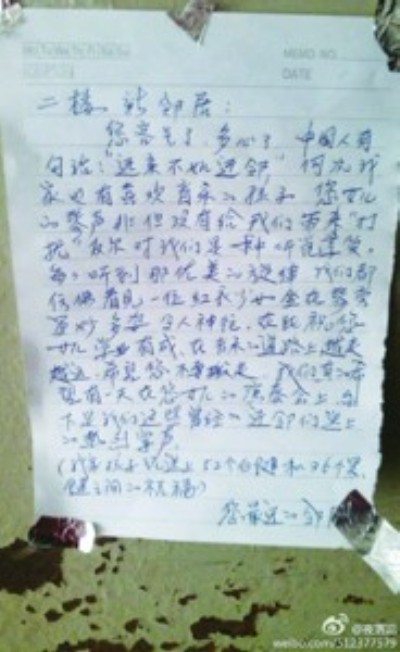 MEMO NO.
DATE
二楼 新邻居：
您客气了，多心了，中国人有
句话："远亲不如近邻，"何况我
家也有喜欢音乐的孩子 您女儿
的琴声非但没有给我们带来"打
扰"反而对我们是一种听觉享受，
每次听到那优美的旋律 我们都
仿佛看见一位红衣少女坐在琴旁
多姿 令人神往，在此祝您
女儿学业有成，在音乐的道路上越走
越远，希望您 我们真的希
望有一天在您女儿的演奏会上，台
下是我们这些曾经的近邻们送上
的热烈掌声
（我家孩子说送上52个白键和36个黑
键之间的祝福）
您最近的邻
weibo.com/512377579